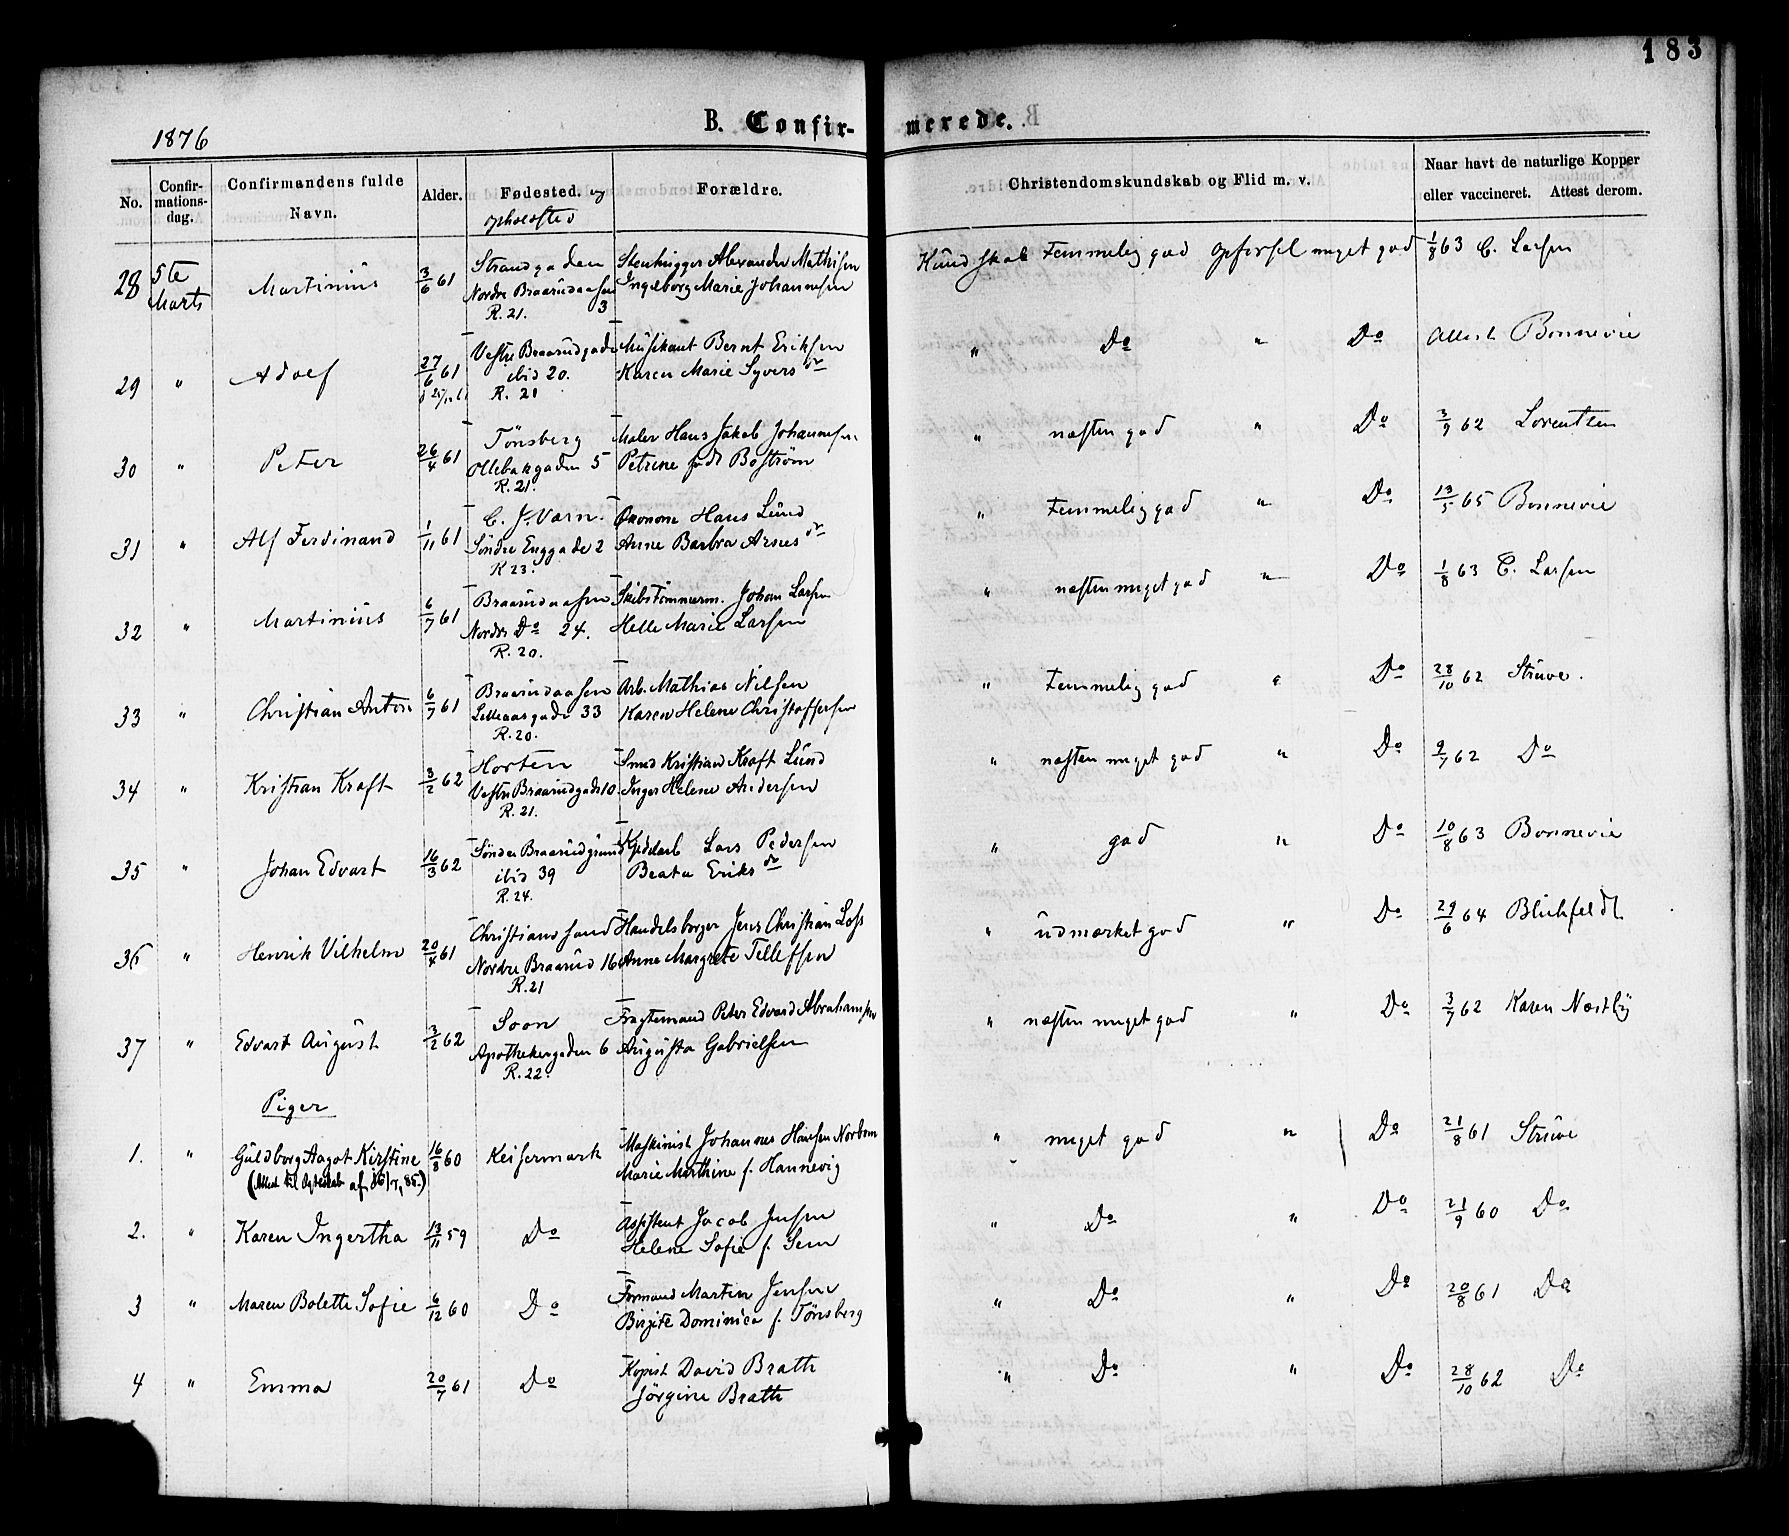 183
1876
B. Confir- merede.
No. Confir- mations- dag. Confirmandens fulde Navn. Alder. Fødested. og opholdsted Forældre. Christendomskundskab og Flid m. v. Naar havt de naturlige Kopper eller vaccineret. Attest derom.
28 5te Marts Martinius 3/6 61 Strandgaden Stenhugger Alexander Mathisen Kundskab Temmelig god Opførsel meget god 1/8 63 C. Larsen
Nordre Braarudaasen 3 Ingeborg Marie Johannesen
R. 21.
29 " Adolf 27/6 61 Vestre Braarudgade Musikant Bernt Eriksen " Do " Do Attest Bonnevie
ibid 20. Karen Marie Syversdr
R. 21
30 " Peter 26/4 61 Tönsberg Maler Hans Jakob Johannesen " næsten god " Do 3/9 62 Lorentzen
Ollebakgaden 5 Petrine født Boström
R. 21.
31 " Alf Ferdinand 1/11 61 C. J.Værn. Økonom Hans Lund " Temmelig god " Do 13/5 65 Bonnevie
Søndre Enggade 2 Anne Barbra Arnesdr
R 23.
32 " Martinius 6/7 61 Braarudaasen Skibstømmerm. Johan Larsen " næsten meget god " Do 1/8 63 C. Larsen
Nordre Do 24. Helle Marie Larsen
R. 20.
33 " Christian Anton 6/7 61 Braarudaasen Arb. Mathias Nilsen " Temmelig god " Do 28/10 62 Struve.
Lilleaasgade 33 Karen Helene Christoffersen
R. 20.
34 " Kristian Kraft 3/2 62 Horten Smed Kristian Kraft Lund " næsten meget god " Do 9/7 62 Do
Vestre Braarudgade 10. Inger Helene Andersen
R. 21.
35 " Johan Edvart 16/3 62 Søndre Braarudgrund Lars Pedersen " god " Do 10/8 63 Bonnevie
ibid 39 Beata Eriksdr
R. 24.
36 " Henrik Vilhelm 20/4 61 Christiansand Handelsborger Jens Christian Loss " udmærket god " Do 29/6 64 Blichfeldt
Nordre Braarud 16 Anne Margrete Tellefsen
R. 21
37 " Edvart August 3/2 62 Soon Fragtemand Peter Edvard Abrahamsen " næsten meget god " Do 3/7 62 Karen Næstby
Apothekergaden 6 Augusta Gabrielsen
R. 22.
Piger
1. " Guldborg Aagot Kirstine 16/8 60 Keisermark Maskinist Johannes Hansen Norbom " meget god " Do 21/8 61 Struve
(Attest til Ægteskab af 85.) Marie Marthine f. Hannevig
2. " Karen Ingertha 13/11 59 Do Assistent Jacob Jensen " Do " Do 21/9 60 Do
Helene Sofie f. Sem
3 " Maren Bolette Sofie 6/12 60 Do Formand Martin Jensen " Do " Do 20/8 61 Do
Birgite Dominica f. Tönsberg
4 " Emma 20/7 61 Do Kopist David Brath " Do " Do 28/10 62 Do
Jörgine Brath